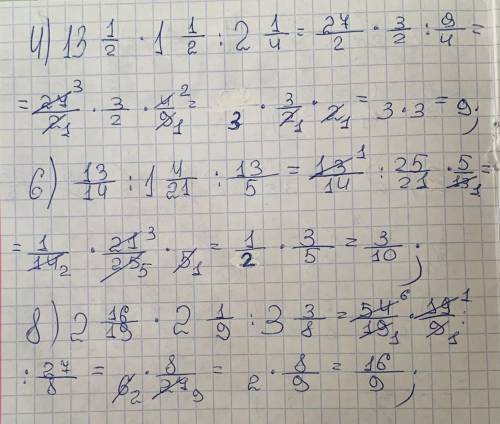 4) 13 1/2 · 1 1/2 : 2 1/4 = 27/2 · 3/2 : 9/4 =
= 27 3/2 1 · 3/2 · 4 2/9 1 = 3 · 3/2 1 · 2 1 = 3 · 3 = 9;
6) 13/14 : 1 4/21 : 13/5 = 13 1/14 : 25/21 · 5/13 1 =
= 1/14 2 · 21 3/25 5 · 5 1 = 1/2 · 3/5 = 3/10;
8) 2 16/19 · 2 1/9 : 3 3/8 = 54 6/19 1 · 19 1/9 1 :
: 27/8 = 6 2 · 8/27 9 = 2 · 8/9 = 16/9;